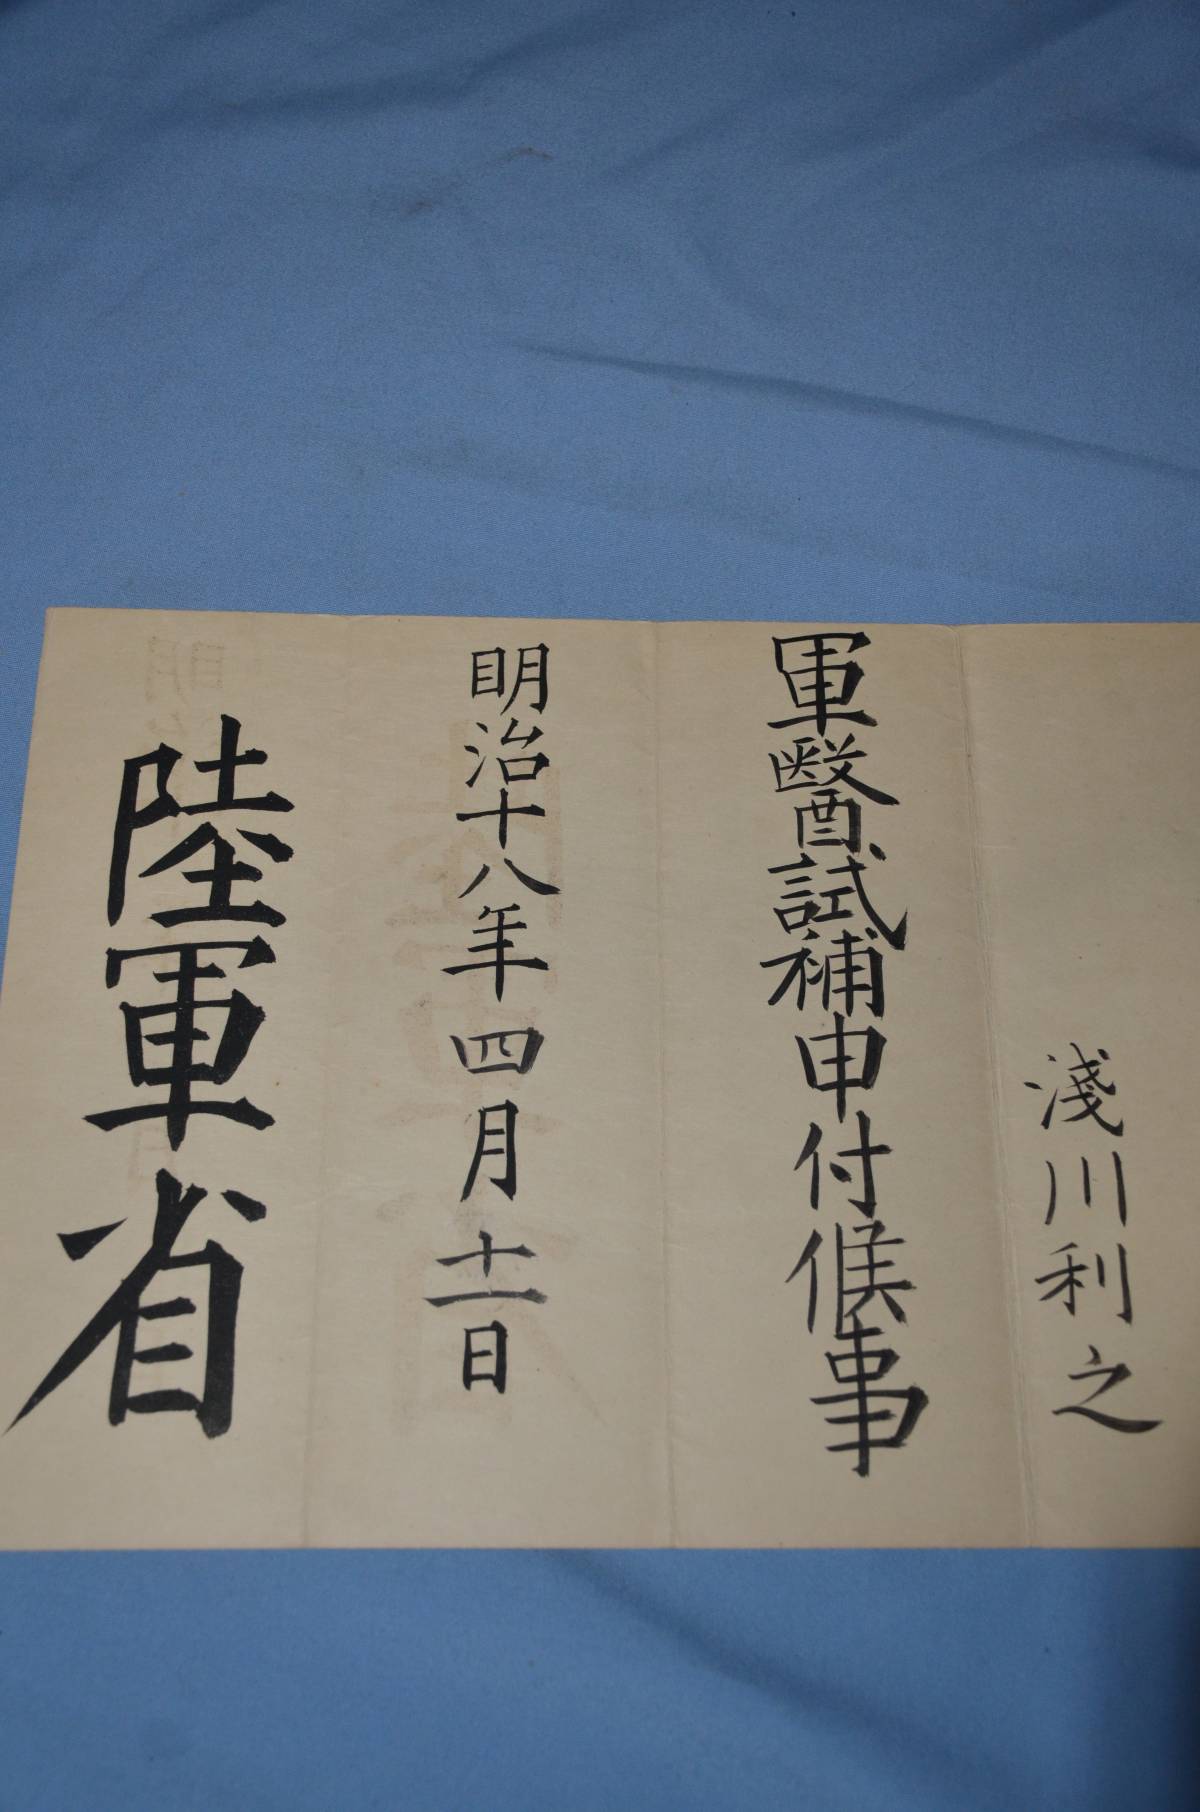 淺川利之
軍醫試補申付候事
明治十八年四月十一日
陸軍省